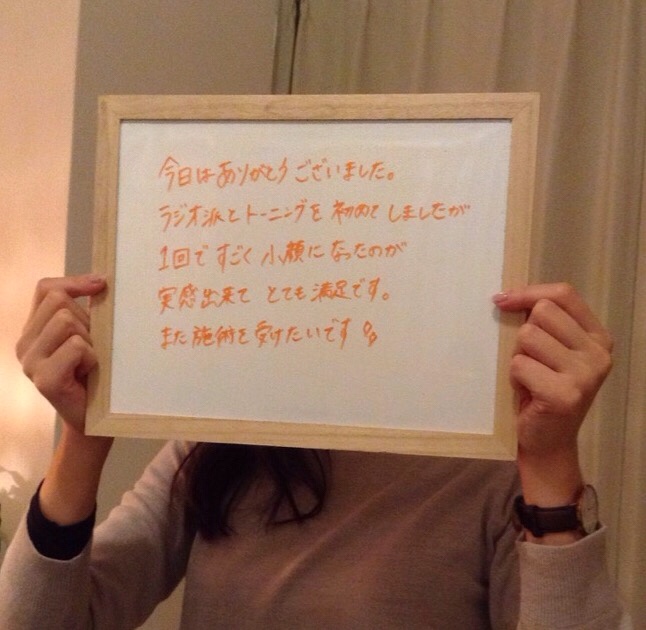 今日はありがとうございました。
ラジオ派とトーニングを初めてしましたが
1回ですごく小顔になったのが
実感出来てとても満足です。
また施術を受けたいです